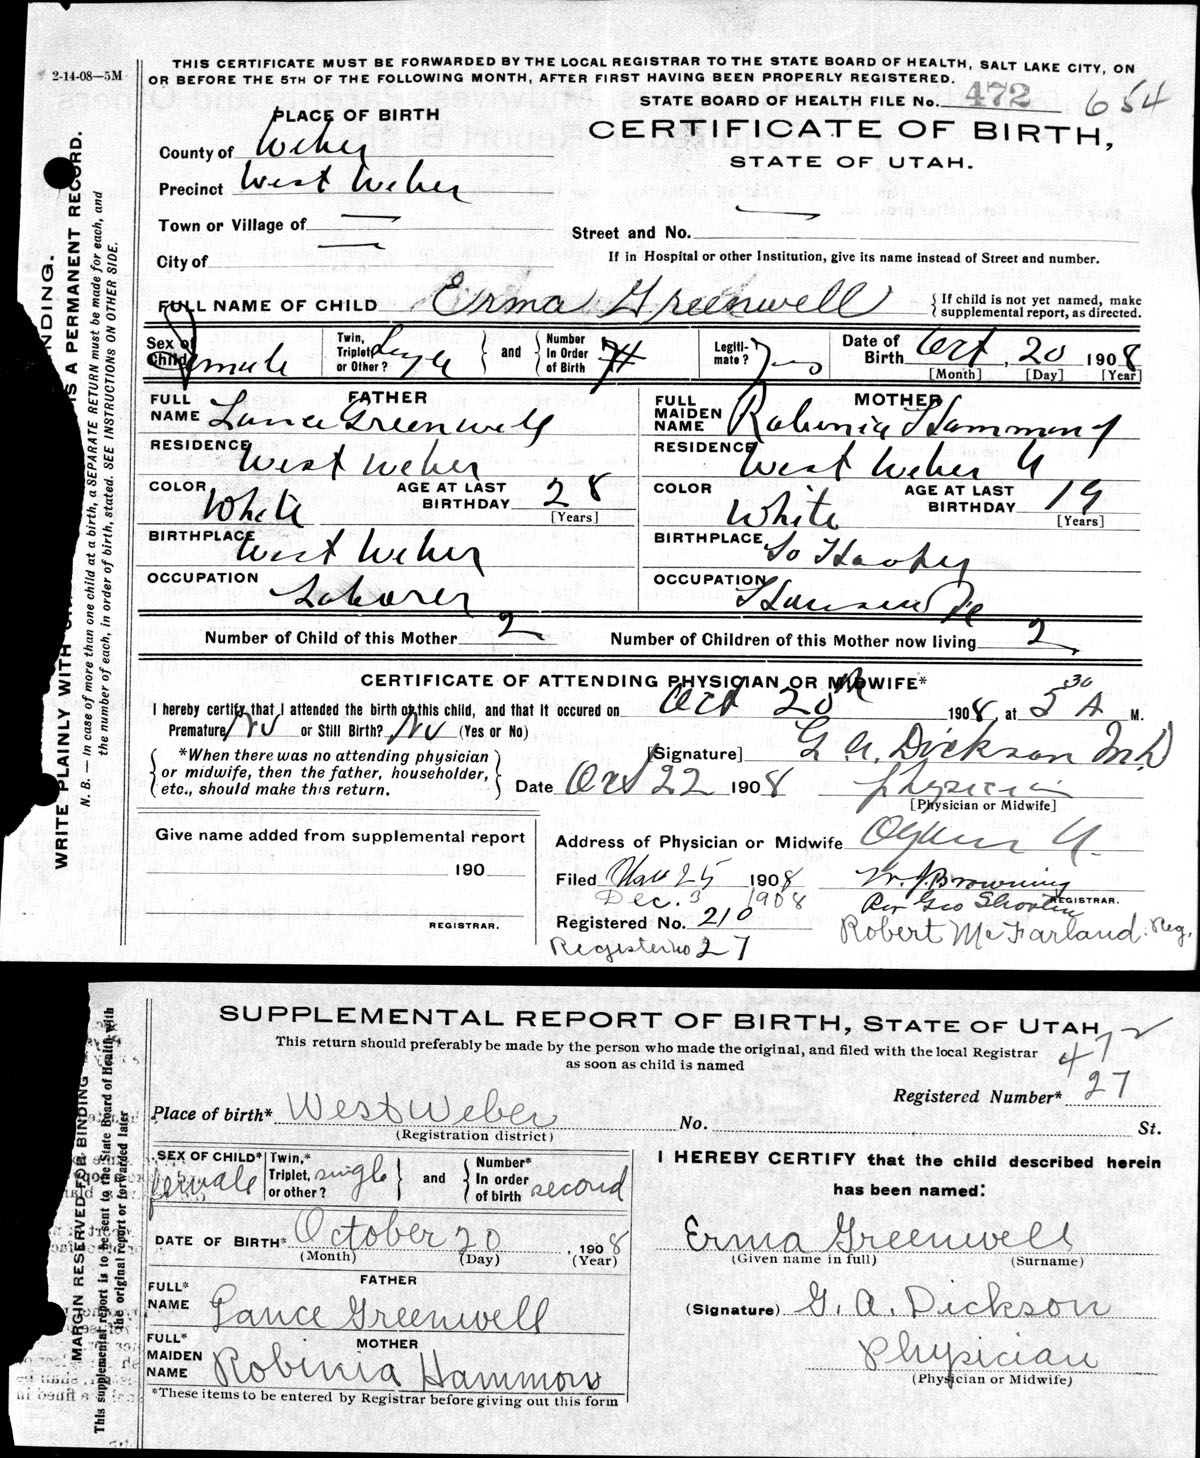 2-14-08—5M
THIS CERTIFICATE MUST BE FORWARDED BY THE LOCAL REGISTRAR TO THE STATE BOARD OF HEALTH, SALT LAKE CITY, ON
OR BEFORE THE 5TH OF THE FOLLOWING MONTH, AFTER FIRST HAVING BEEN PROPERLY REGISTERED.
STATE BOARD OF HEALTH FILE No. 472 654
PLACE OF BIRTH
CERTIFICATE OF BIRTH,
STATE OF UTAH.
County of Weber
Precinct West Weber
Town or Village of —
Street and No. —
City of —
If in Hospital or other Institution, give its name instead of Street and number.
FULL NAME OF CHILD Erma Greenwell { If child is not yet named, make supplemental report, as directed.
Sex of Child Female Twin, Triplet or Other? Single and Number In Order of Birth Legitimate? Yes Date of Birth Oct, 20 1908
[Month] [Day] [Year]
FATHER
FULL NAME Lance Greenwell
RESIDENCE West Weber
COLOR White AGE AT LAST BIRTHDAY 28
[Years]
BIRTHPLACE West Weber
OCCUPATION Laborer
MOTHER
FULL MAIDEN NAME Robinia Hammon
RESIDENCE West Weber U
COLOR White AGE AT LAST BIRTHDAY 19
[Years]
BIRTHPLACE So Hooper
OCCUPATION Housewife
Number of Child of this Mother 2 Number of Children of this Mother now living 2
CERTIFICATE OF ATTENDING PHYSICIAN OR MIDWIFE*
I hereby certify that I attended the birth of this child, and that it occured on Oct 20th 1908, at 5 30 A M.
Premature No or Still Birth? No (Yes or No)
*When there was no attending physician
or midwife, then the father, householder,
etc., should make this return.
[Signature] G A. Dickson M.D
Date Oct 22 1908 Physician
[Physician or Midwife]
Give name added from supplemental report
190
REGISTRAR.
Address of Physician or Midwife Ogden U.
Filed 25 1908 W. J Browning
Dec. 3 1908
REGISTRAR.
Per Geo
Registered No. 210 Robert McFarland. Reg.
Register no 27
WRITE PLAINLY WITH
NDING.
S A PERMANENT RECORD.
N. B. — In case of more than one child at a birth, a SEPARATE RETURN must be made for each, and
the number of each, in order of birth, stated. SEE INSTRUCTIONS ON OTHER SIDE.
SUPPLEMENTAL REPORT OF BIRTH, STATE OF UTAH
This return should preferably be made by the person who made the original, and filed with the local Registrar
as soon as child is named
472
Registered Number* 27
Place of birth* West Weber No. St.
(Registration district)
SEX OF CHILD* female Twin,* Triplet, or other? single and Number* In order of birth second
DATE OF BIRTH* October 20, 1908
(Month) (Day) (Year)
FATHER
FULL* NAME Lance Greenwell
MOTHER
FULL* MAIDEN NAME Robinia Hammon
*These items to be entered by Registrar before giving out this form
I HEREBY CERTIFY that the child described herein
has been named:
Erma Greenwell
(Given name in full) (Surname)
(Signature) G. A. Dickson
Physician
(Physician or Midwife)
MARGIN RESERVED FOR BINDING
This supplemental report is to be sent to the State Board of Health with
the original report or forwarded later